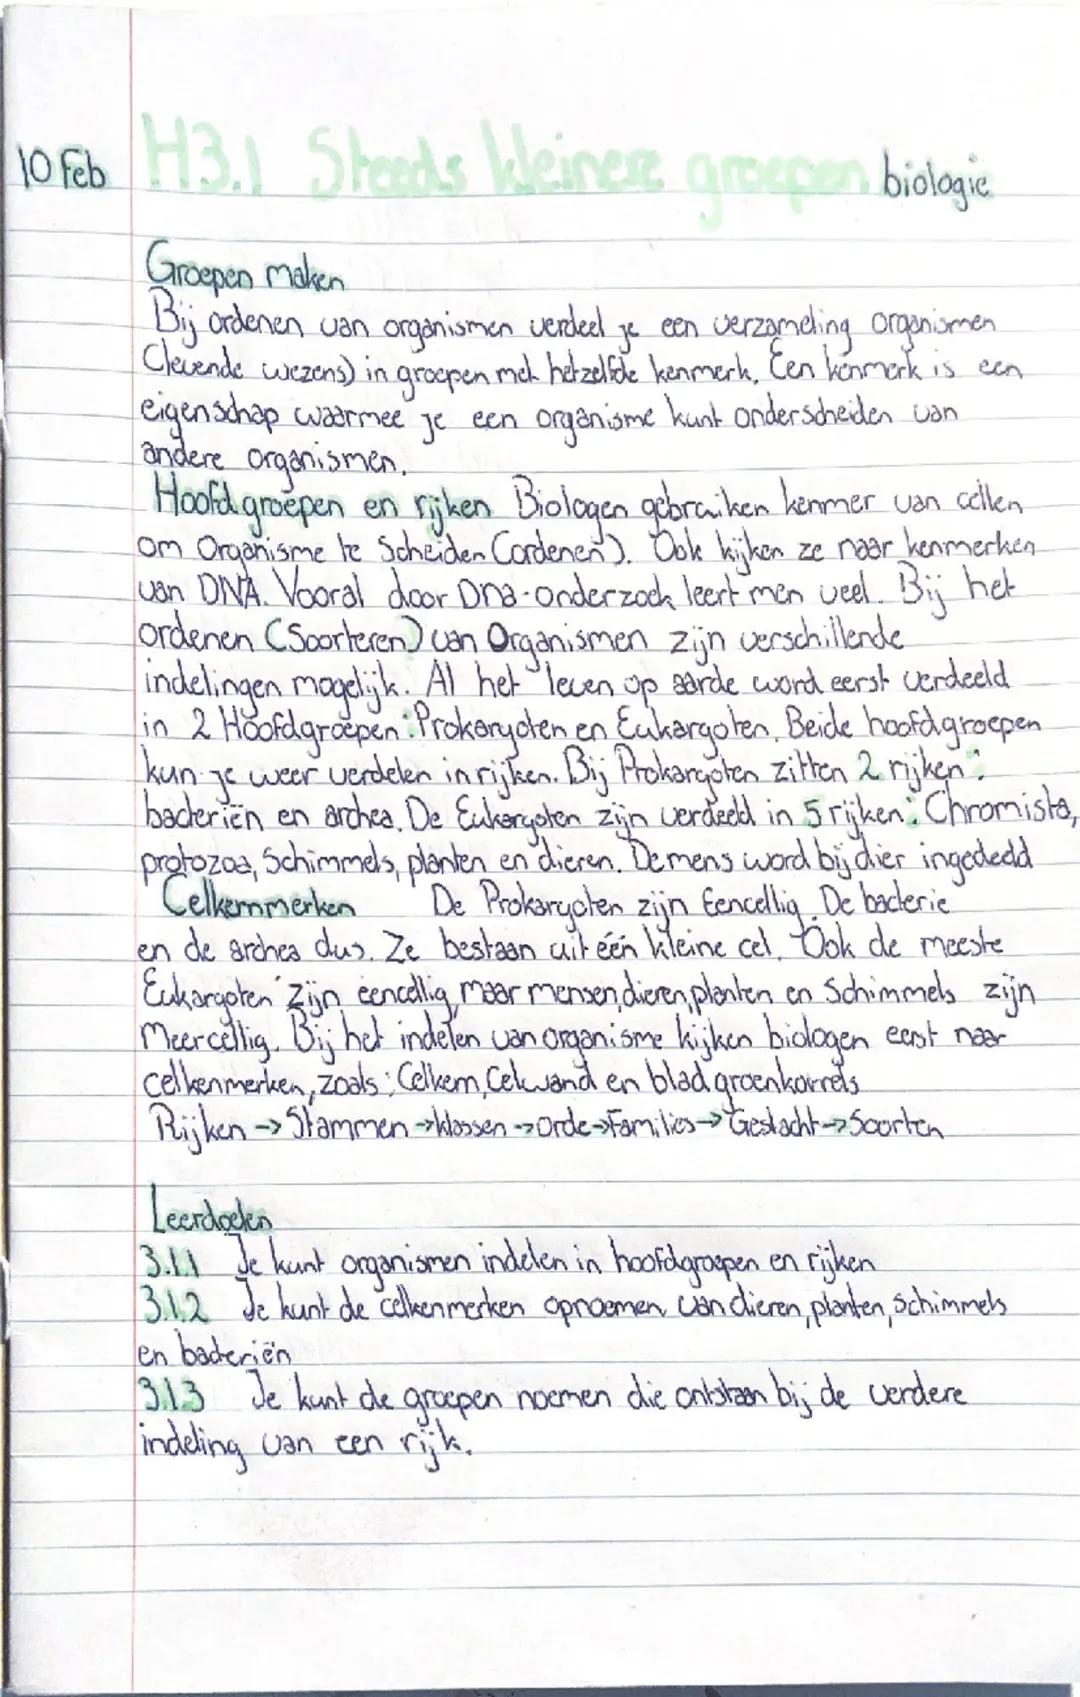 10 Feb H3.1 Steeds kleinere groepen biologie
Groepen maken
Bij ordenen van organismen verdeel je een verzameling organismen
(levende wezens) in groepen met hetzelfde kenmerk. Een kenmerk is een
eigenschap waarmee je een organisme kunt onderscheiden van
andere organismen.
Hoofdgroepen en rijken Biologen gebruiken kenmer van cellen
om Organisme te Scheiden (ordenen). Ook kijken ze naar kenmerken
van DNA. Vooral door Dna-onderzoek leert men veel. Bij het
ordenen (Soorteren) van Organismen zijn verschillende
indelingen mogelijk. Al het leven op aarde word eerst verdeeld
in 2 Hoofdgroepen: Prokaryoten en Eukaryoten. Beide hoofdgroepen
kun je weer verdelen in rijken. Bij Prokaryoten zitten 2 rijken:
bacteriën en archea. De Eukaryoten zijn verdeeld in 5 rijken: Chromista,
protozoa, Schimmels, planten en dieren. De mens word bij dier ingedeeld
Celkernmerken De Prokaryoten zijn Eencellig. De bacterie
en de archea dus. Ze bestaan uit één kleine cel. Ook de meeste
Eukaryoten zijn eencellig, maar mensen, dieren, planten en Schimmels zijn
Meercellig. Bij het indelen van organisme kijken biologen eerst naar
celkenmerken, zoals: Celkern, Celwand en bladgroenkorrels
Rijken -> Stammen -> klassen -> Orde -> Families -> Geslacht -> Soorten
Leerdoelen
3.1.1 Je kunt organismen indelen in hoofdgroepen en rijken
3.1.2 Je kunt de celkenmerken opnoemen van dieren, planten, Schimmels
en bacteriën
3.1.3 Je kunt de groepen noemen die ontstaan bij de verdere
indeling van een rijk.